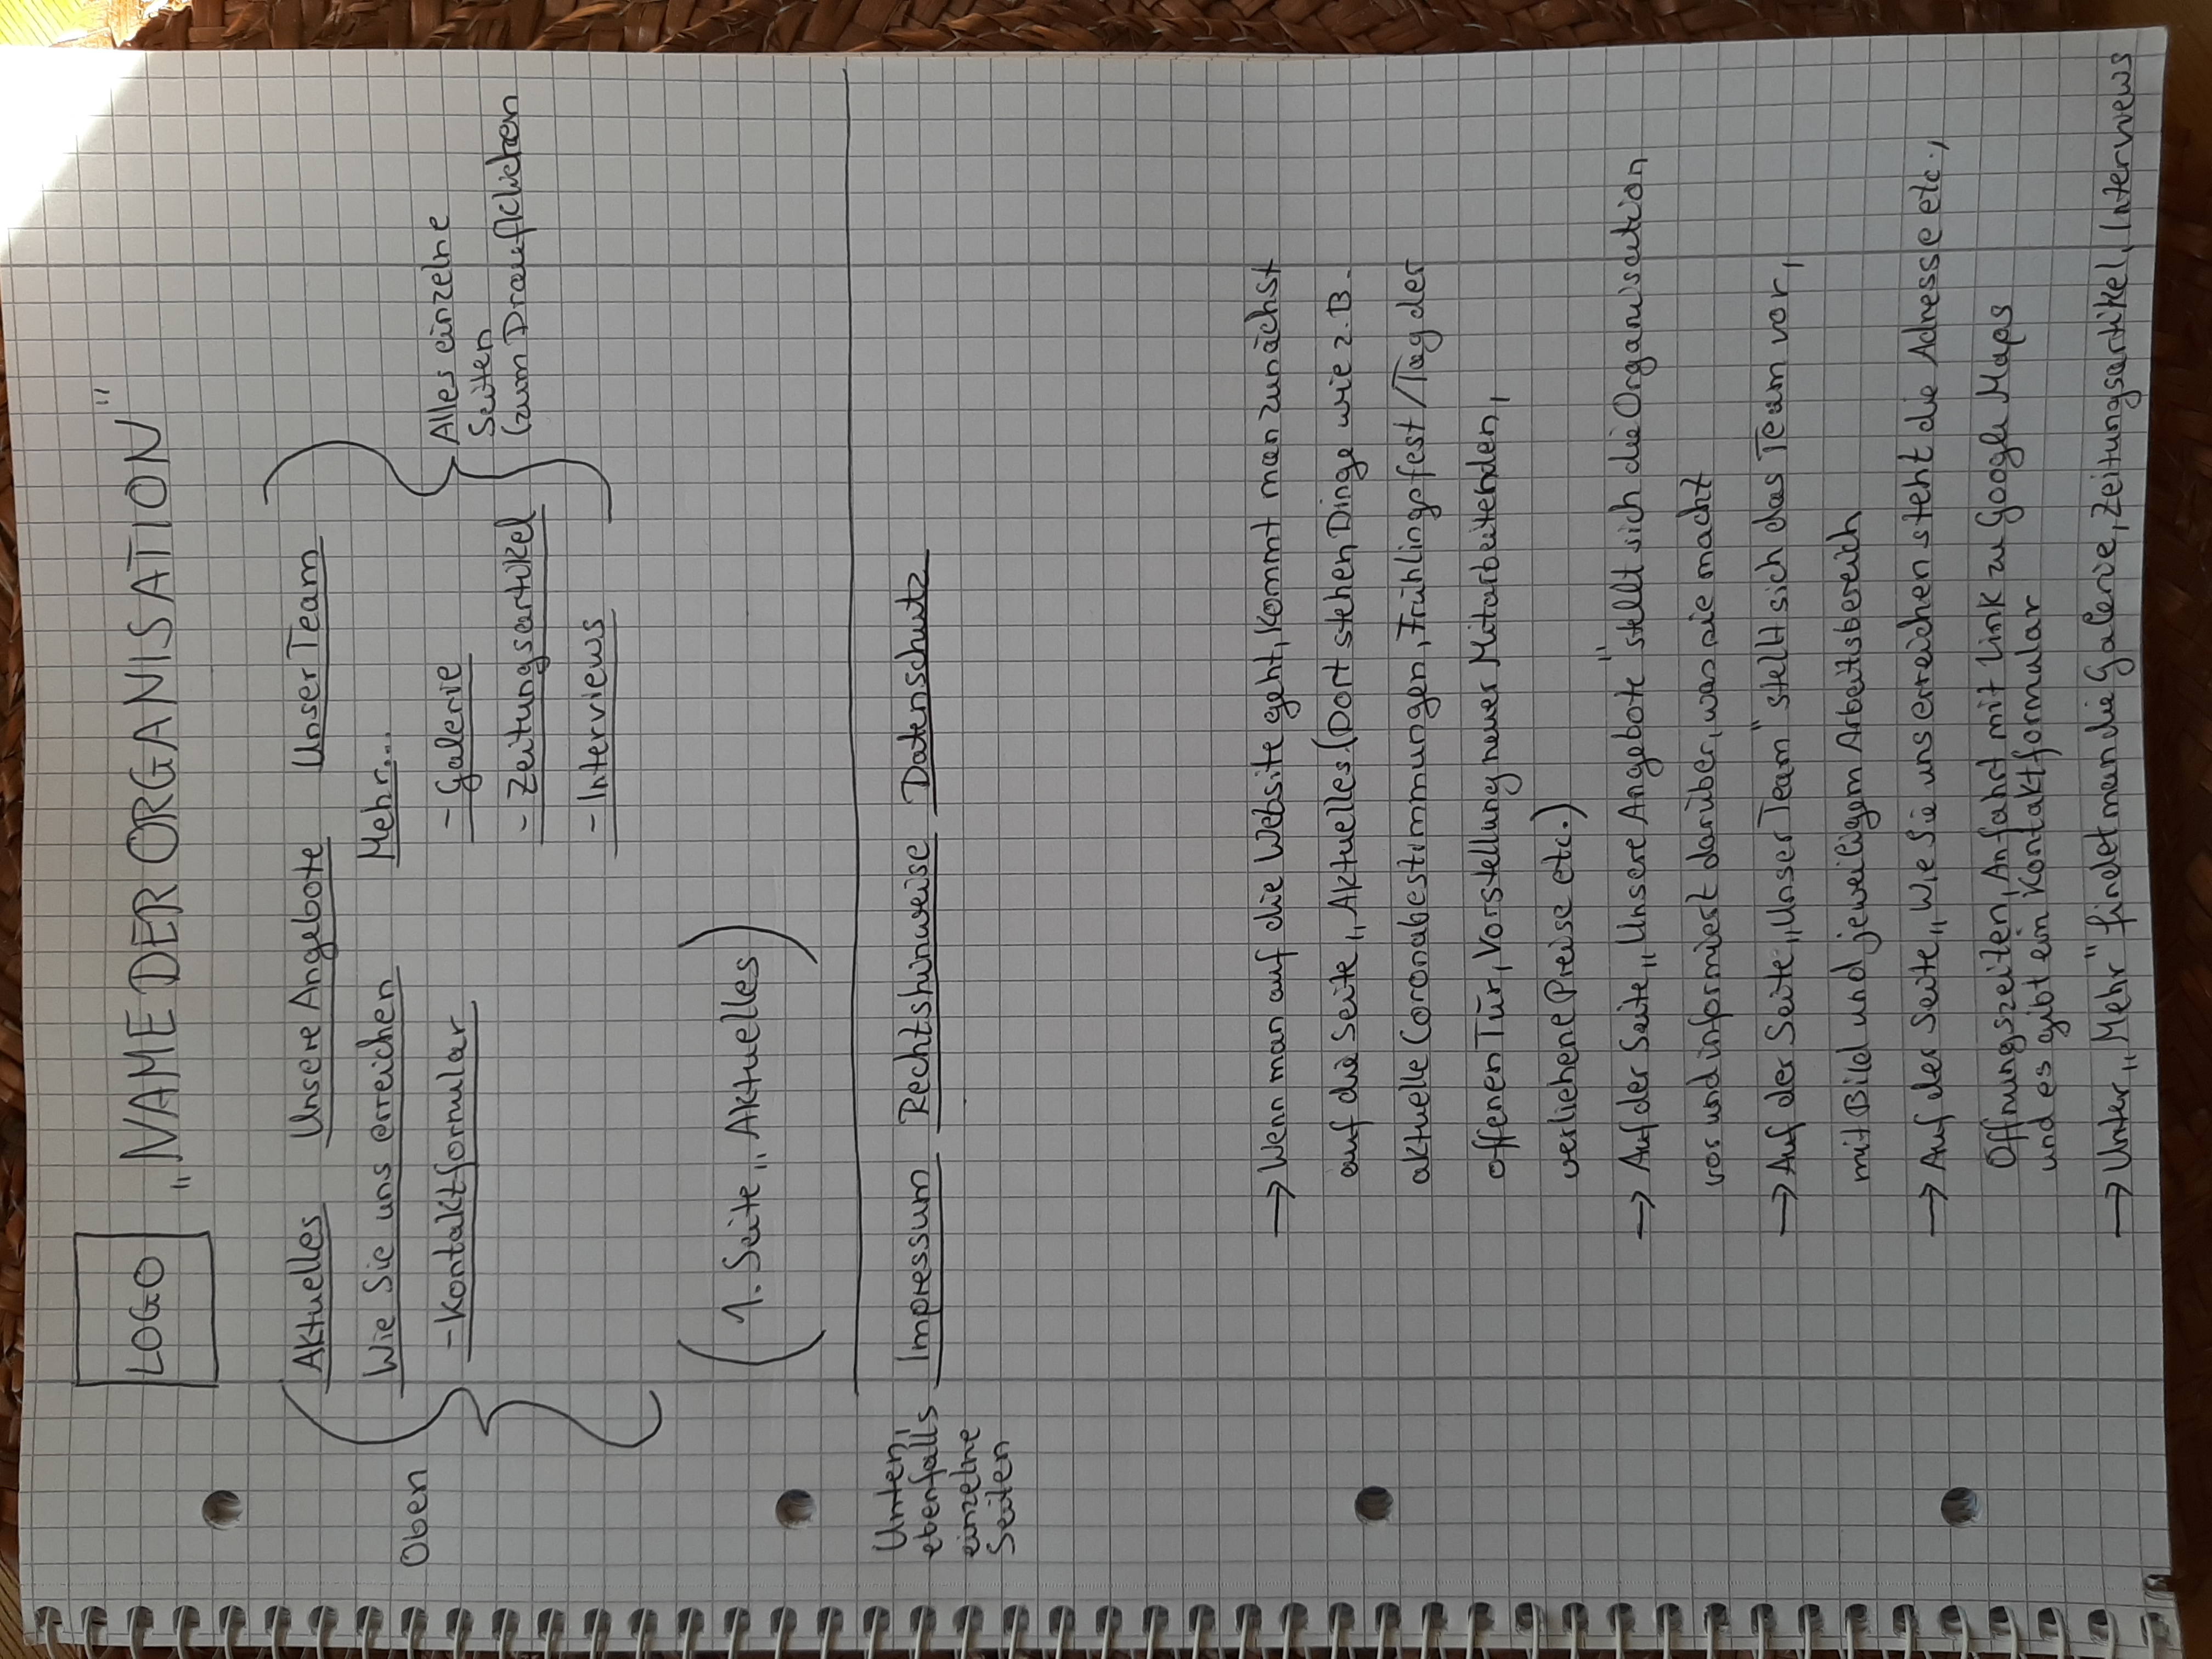 LOGO „NAME DER ORGANISATION"
Aktuelles Unsere Angebote Unser Team
Wie Sie uns erreichen Mehr...
Oben
- Kontaktformular - Galerie
Alles einzelne
Seiten
(zum Draufklicken
- Zeitungsartikel
- Interviews
(1. Seite „Aktuelles)
Unten,
ebenfalls
einzelne
Seiten
Impressum Rechtshinweise Datenschutz
→ Wenn man auf die Website geht, kommt man zunächst
auf die Seite „Aktuelles (Dort stehen Dinge wie z.B.
aktuelle Coronabestimmungen, Frühlingsfest/Tag der
offenen Tür, Vorstellung neuer Mitarbeitenden,
verliehene Preise etc.)
→ Auf der Seite „Unsere Angebote" stellt sich die Organisation
vor und informiert darüber, was sie macht
→ Auf der Seite „Unser Team" stellt sich das Team vor,
mit Bild und jeweiligem Arbeitsbereich
→ Auf der Seite „Wie Sie uns erreichen steht die Adresse etc.,
Öffnungszeiten, Anfahrt mit Link zu Google Maps
und es gibt ein Kontaktformular
→ Unter „Mehr" findet man die Galerie, Zeitungsartikel, Interviews